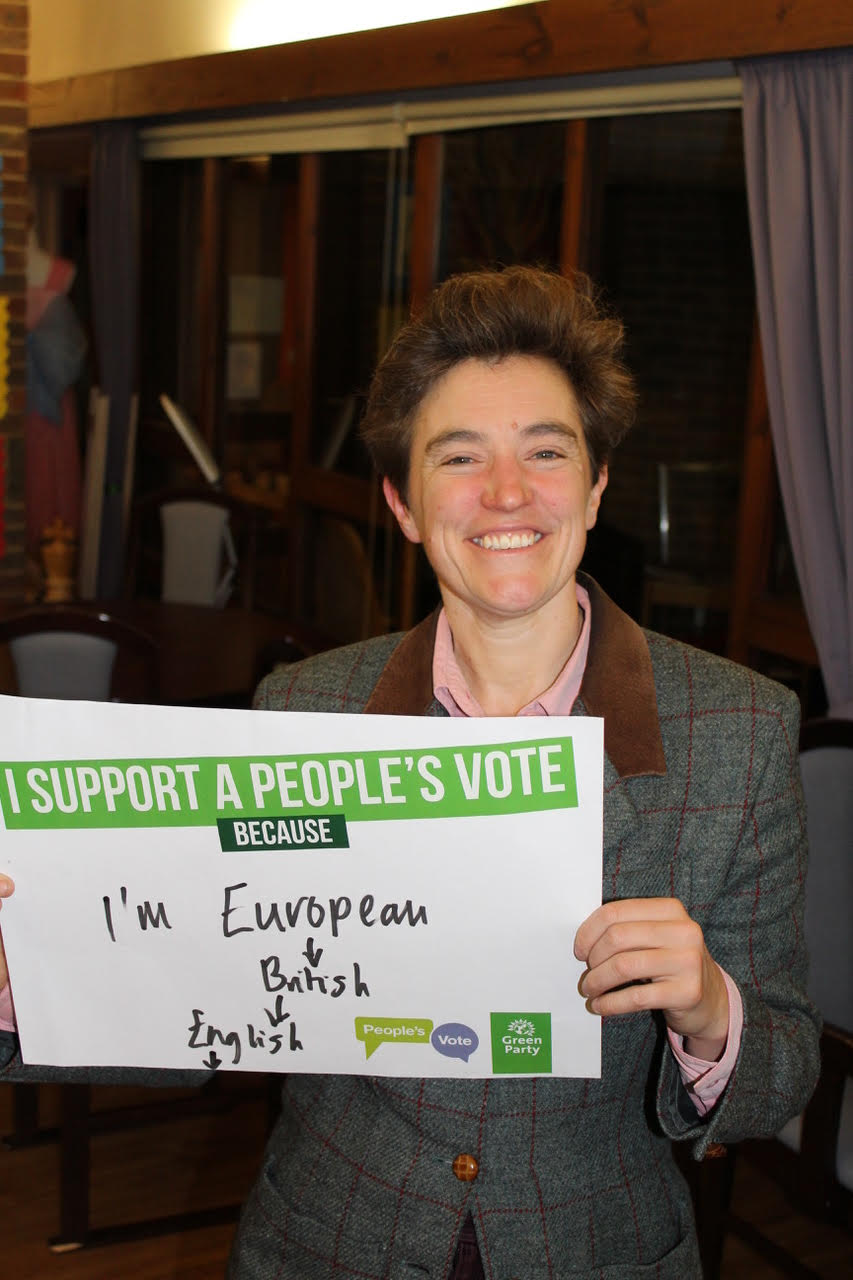 I SUPPORT A PEOPLE'S VOTE
BECAUSE
I'm European
↓
British
↓
English
↓
People's Vote
Green
Party